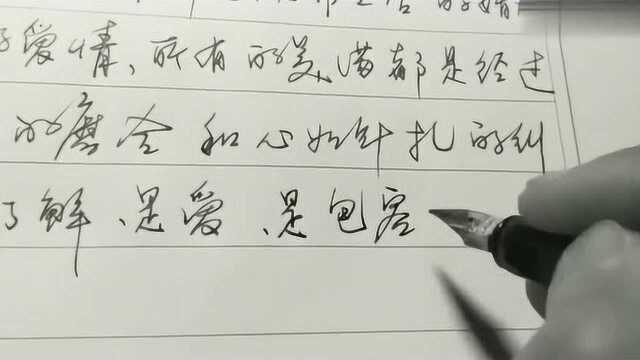 爱情、所有的美满都是经过
的磨合和心如针扎的纠
了解、是爱、是包容